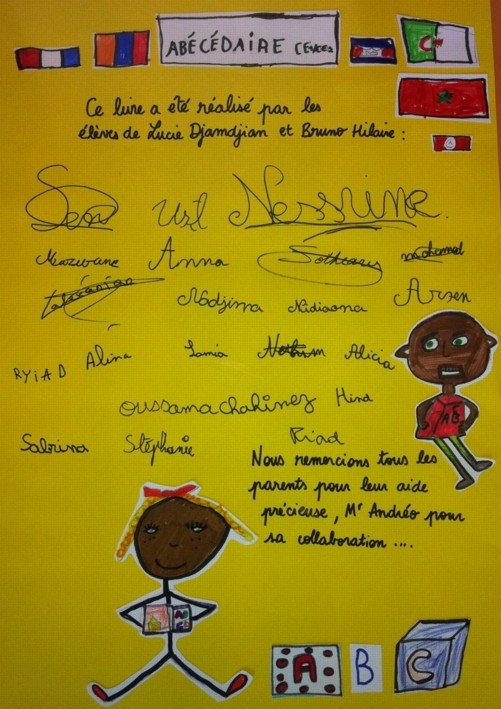 ABÉCÉDAIRE
Ce livre a été réalisé par les
élèves de Lucie Djamdjian et Bruno Hilaire :
Nessrine
Marwane Anna Mohamed
Nadjima Nidiaona Arsen
RYiAD Alina Lamia Alicia
oussama chahinez Hind
Sabrina Stéphanie Riad
Nous remercions tous les
parents pour leur aide
précieuse, Mr Andréo pour
sa collaboration ....
A B C